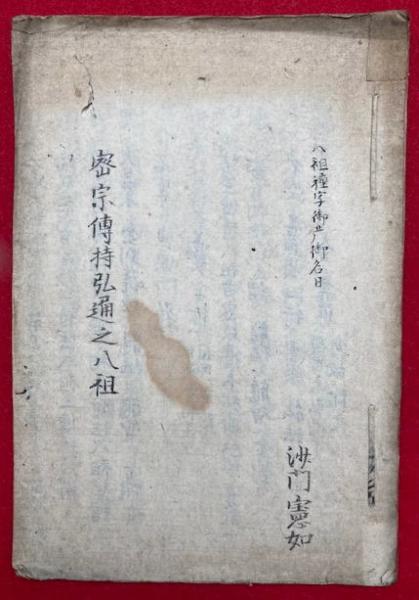 八祖種字御影御名日
密宗傳持弘通之八祖
沙門憲如